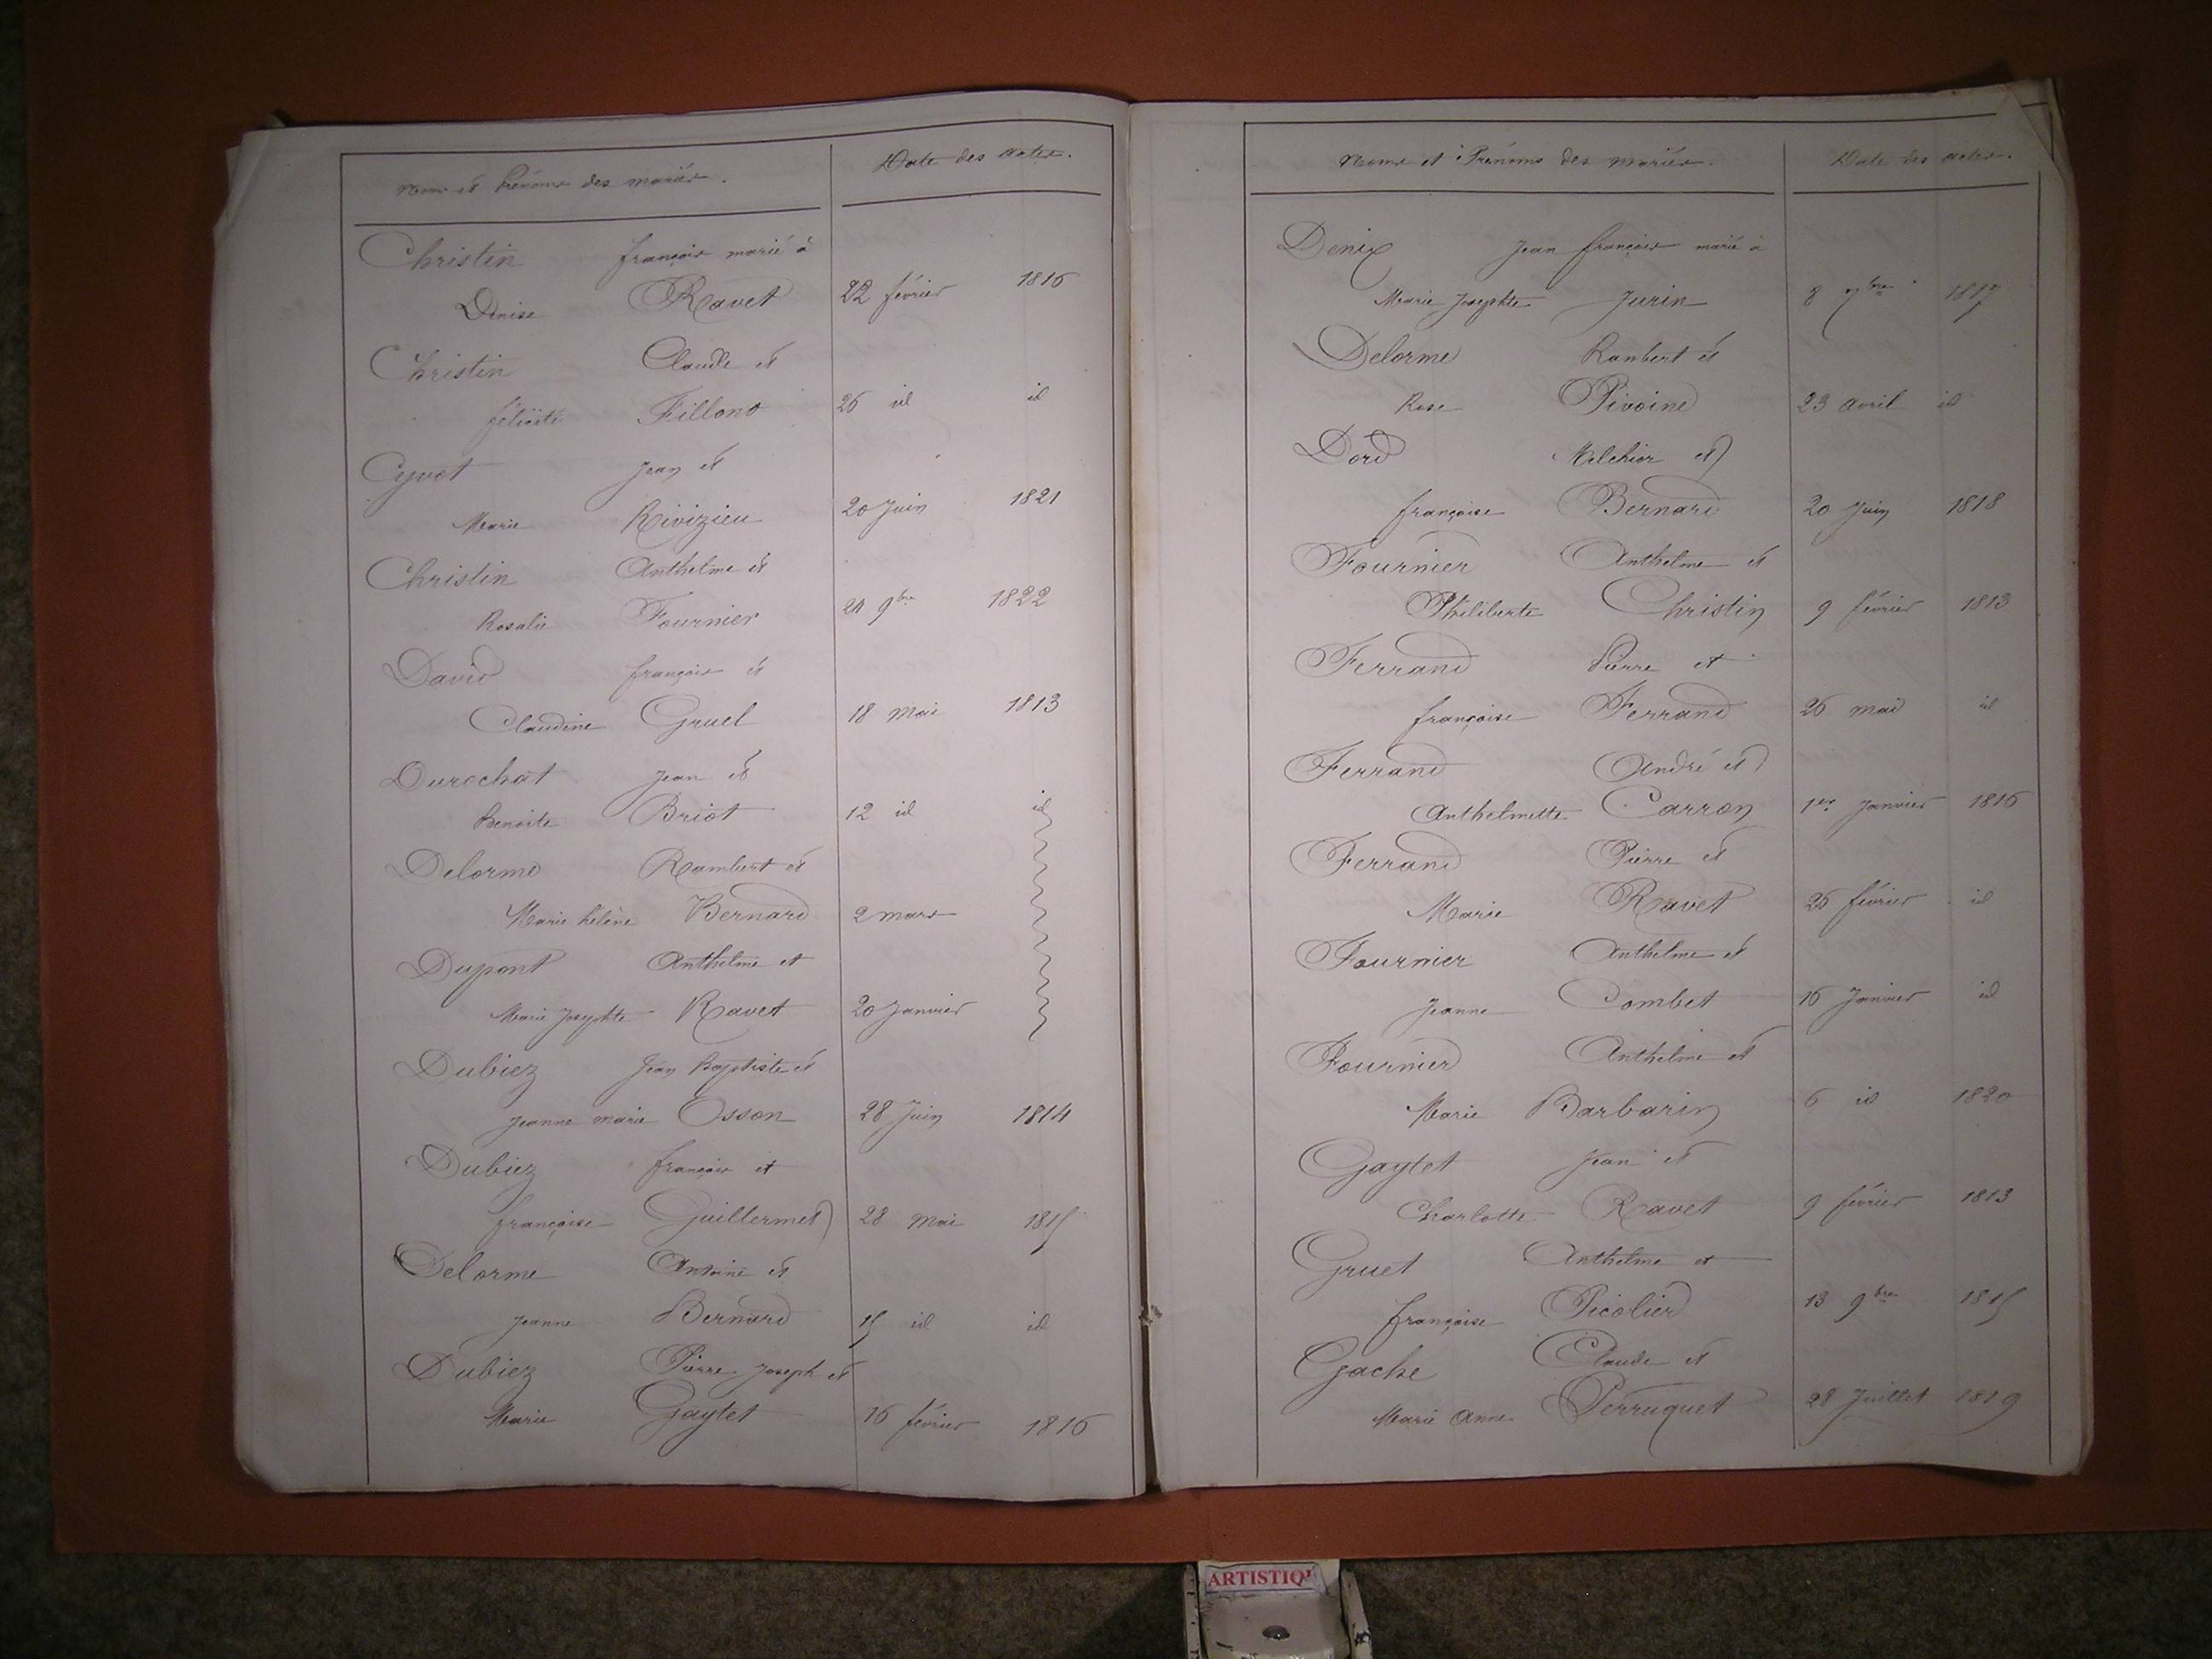 Noms et Prénoms des mariés.
Date des actes.
Christin françois marié à
Denise Ravet 22 février 1816
Christin Claude et
félicité Fillont 26 id id
Cyvot Jean et
Marie Rivizieu 20 Juin 1821
Christin Anthelme et
Rosalie Fournier 24 9bre 1822
David françois et
Claudine Gruel 18 mai 1813
Durochat Jean et
Benoite Briot 12 id id
Delorme Rambert et
Marie hélène Bernard 2 mars
Dupont Anthelme et
Marie Josephte Ravet 20 Janvier
Dubiez Jean Baptiste et
Jeanne marie Osson 28 Juin 1814
Dubiez françois et
françoise Guillermet 28 mai 1815
Delorme Antoine et
Jeanne Bernard 15 id id
Dubiez Pierre Joseph et
Marie Gaytet 16 février 1816
Noms et Prénoms des mariés.
Date des actes.
Denix Jean françois marié à
Marie Josephte Jurin 8 7bre 1817
Delorme Rambert et
Rose Pivoine 23 avril id
Dord Melchior et
françoise Bernard 20 Juin 1818
Fournier Anthelme et
Philiberte Christin 9 février 1813
Ferrand Pierre et
françoise Ferrand 26 mai id
Ferrand André et
Anthelmette Carron 1er Janvier 1816
Ferrand Pierre et
Marie Ravet 26 février id
Fournier Anthelme et
Jeanne Combet 16 Janvier id
Fournier Anthelme et
Marie Barbarin 6 id 1820
Gaytet Jean et
Charlotte Ravet 9 février 1813
Gruet Anthelme et
françoise Picolier 13 9bre 1815
Gache Claude et
Marie Anne Perruquet 28 Juillet 1819
ARTISTIQ'